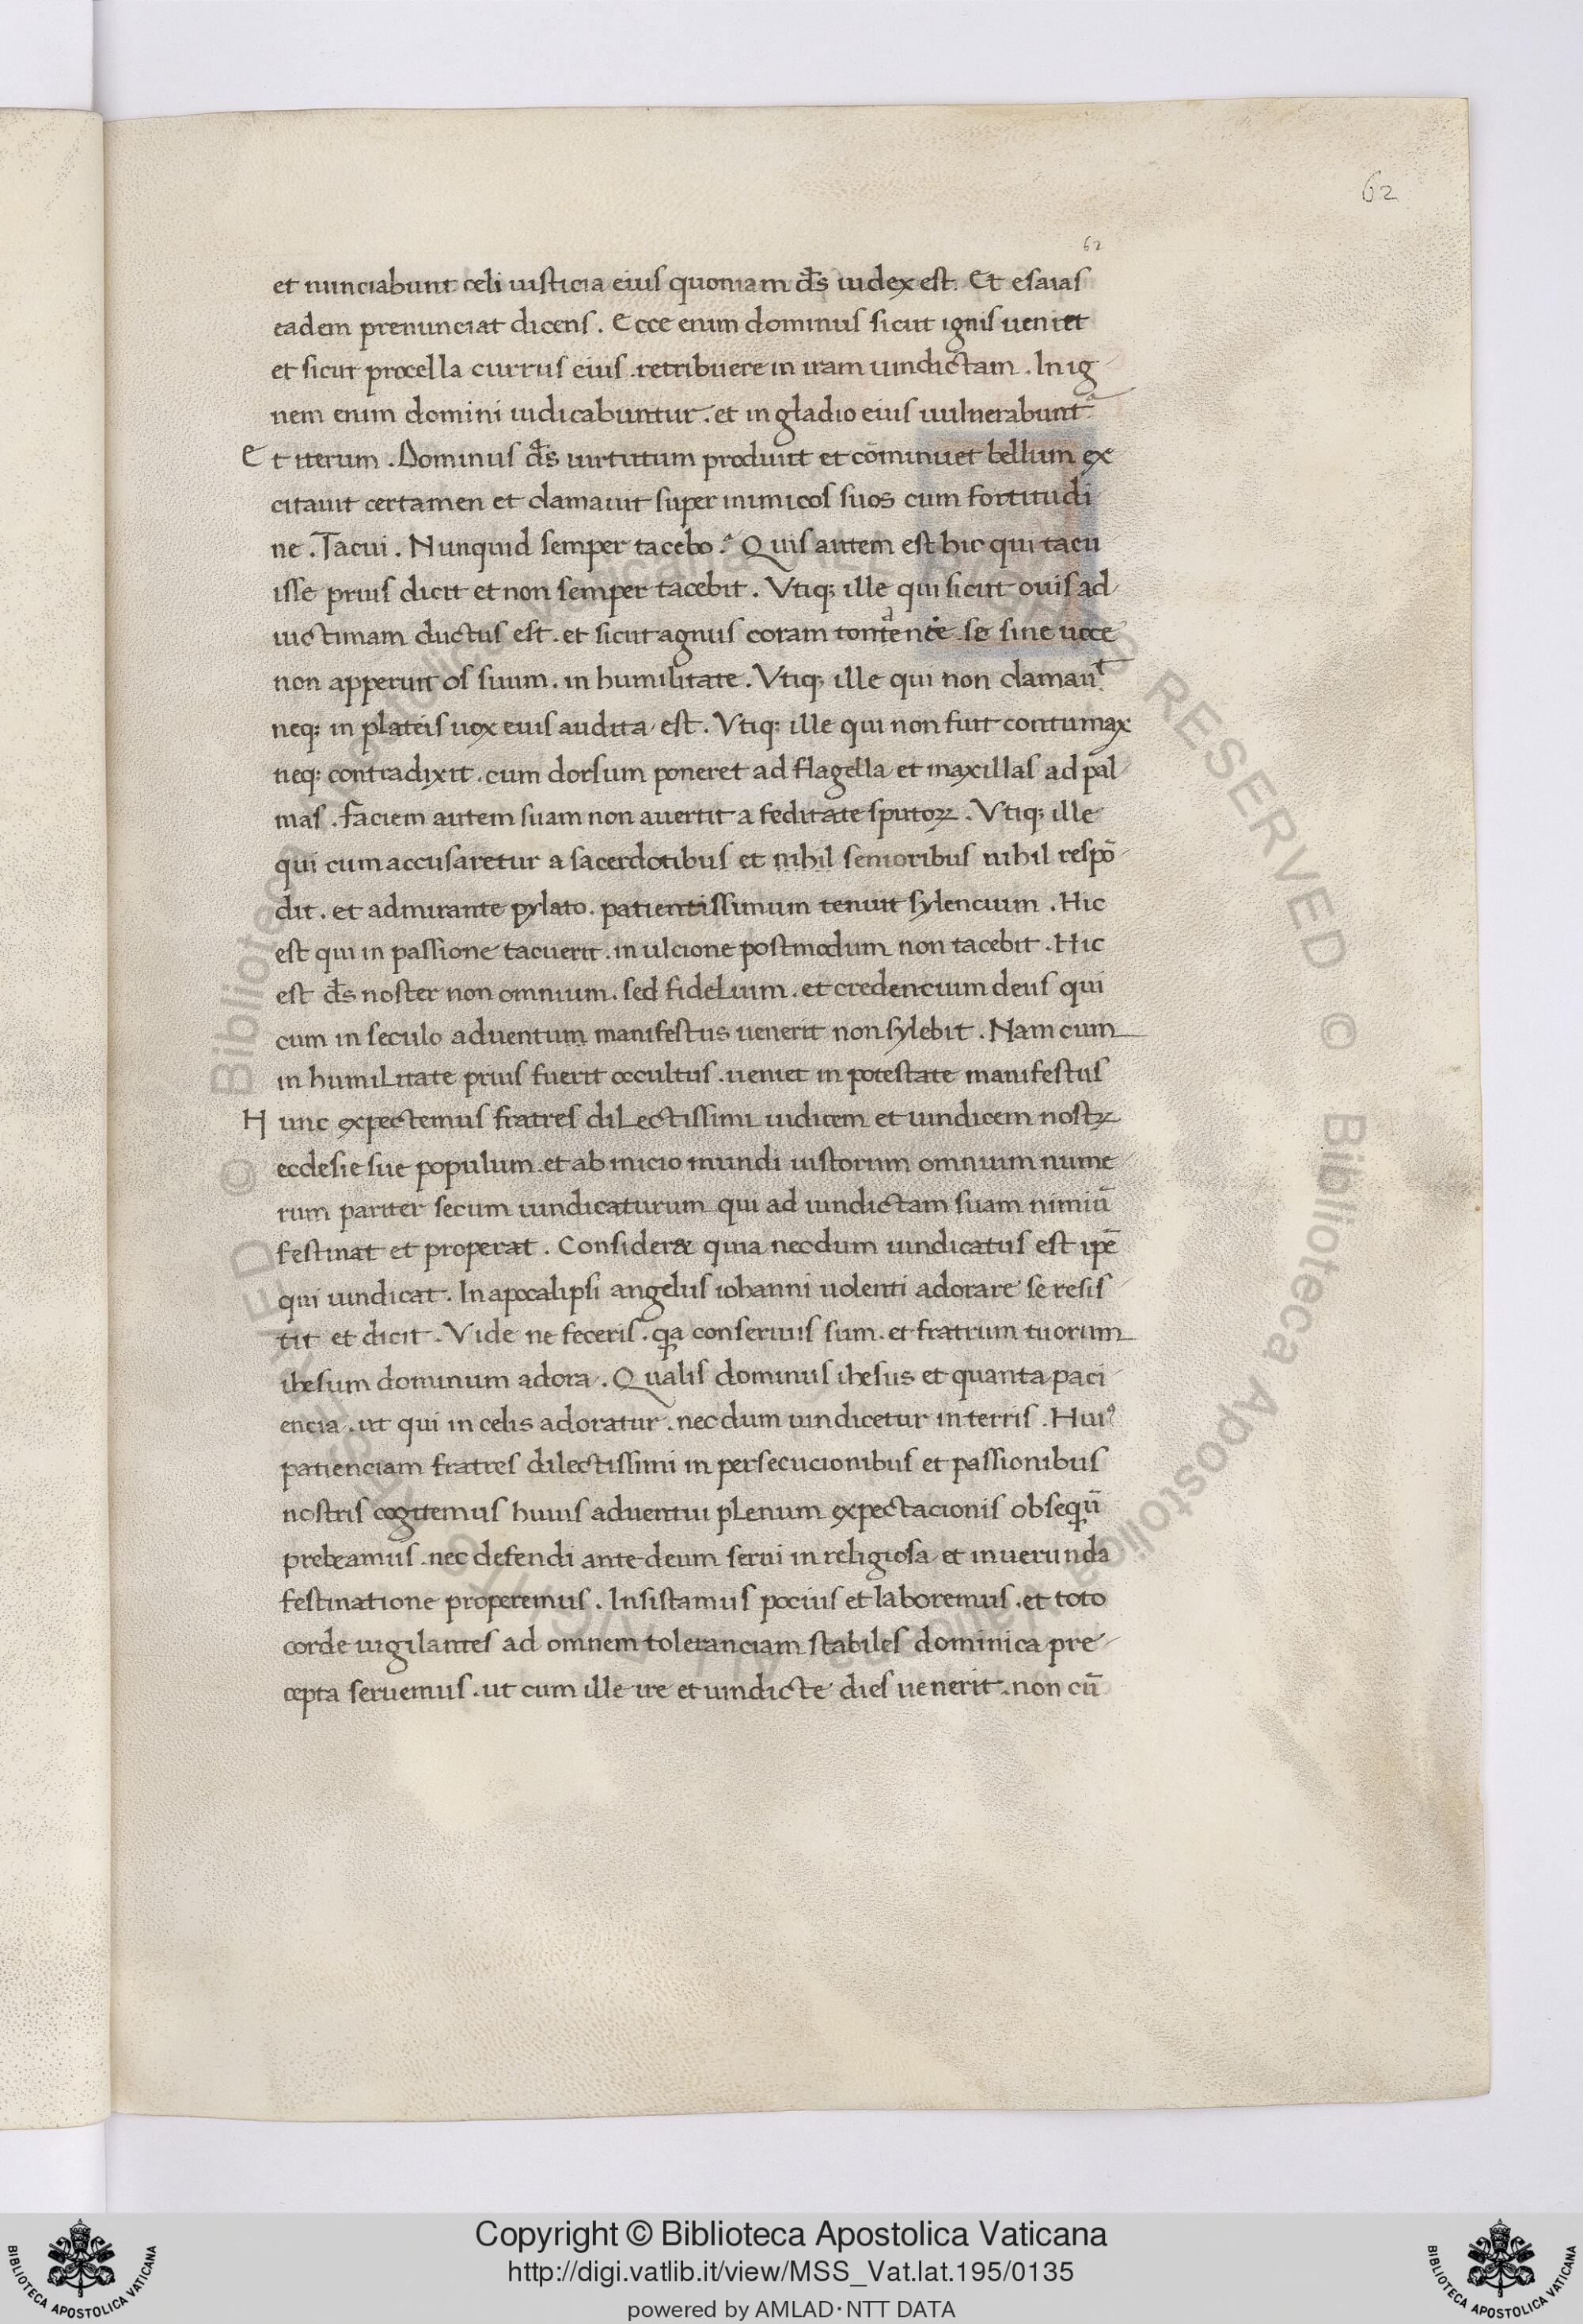 62
62
et nunciabunt celi iusticia eius quoniam d̅s iudex est. Et esaias
eadem prenunciat dicens. Ecce enim dominus sicut ignis ueniet
et sicut procella currus eius. retribuere in iram uindictam. In ig
nem enim domini iudicabuntur. et in gladio eius uulnerabunt᷑
Et iterum. Dominus d̅s uirtutum produnt et co̅minuet bellum ex
citauit certamen et clamauit super inimicos suos cum fortitudi
ne. Tacui. Nunquid semper tacebo? Quis autem est hic qui tacu
isse prius dicit et non semper tacebit. Vtiq; ille qui sicut ouis ad
uictimam ductus est. et sicut agnus coram se sine uoce
non apperuit os suum. in humilitate. Vtiq; ille qui non clamauͭ
neq; in plateis uox eius audita est. Vtiq; ille qui non fuit contumax
neq; contradixit. cum dorsum poneret ad flagella et maxillas ad pal
mas. faciem autem suam non auertit a feditate sputoꝝ. Vtiq; ille
qui cum accusaretur a sacerdotibus et nihil senioribus nihil respo̅
dit. et admirante pylato. patientissimum tenuit sylencium. Hic
est qui in passione tacuerit. in ulcione postmodum non tacebit. Hic
est d̅s noster non omnium. sed fidelium. et credencium deus qui
cum in seculo aduentum manifestus uenerit non sylebit. Nam cum
in humilitate prius fuerit occultus. ueniet in potestate manifestus
Hunc expectemus fratres dilectissimi iudicem et uindicem nostꝝ
ecclesie sue populum. et ab inicio mundi iustorum omnium nume
rum pariter secum uindicaturum qui ad uindictam suam nimiu̅
festinat et properat. Consider& quia necdum uindicatus est ip̅e
qui uindicat. In apocalipsi angelus iohanni uolenti adorare se resis
tit et dicit. Vide ne feceris. qa conseruus sum. et fratrum tuorum
ihesum dominum adora. Qualis dominus ihesus et quanta paci
encia. ut qui in celis adoratur. necdum uindicetur in terris. Huiꝰ
patienciam fratres dilectissimi in persecucionibus et passionibus
nostris cogitemus huius aduentui plenum expectacionis obsequ̅
prebeamus. nec defendi ante deum serui in religiosa et inuerunda
festinatione properemus. Insistamus pocius et laboremus. et toto
corde uigilantes ad omnem toleranciam stabiles dominica pre
cepta seruemus. ut cum ille ire et uindicte dies uenerit. non cu̅
© Biblioteca Apostolica Vaticana ALL RIGHTS RESERVED © Biblioteca Apostolica Vaticana ALL RIGHTS RESERVED
BIBLIOTECA APOSTOLICA VATICANA
Copyright © Biblioteca Apostolica Vaticana
http://digi.vatlib.it/view/MSS_Vat.lat.195/0135
powered by AMLAD·NTT DATA
BIBLIOTECA APOSTOLICA VATICANA